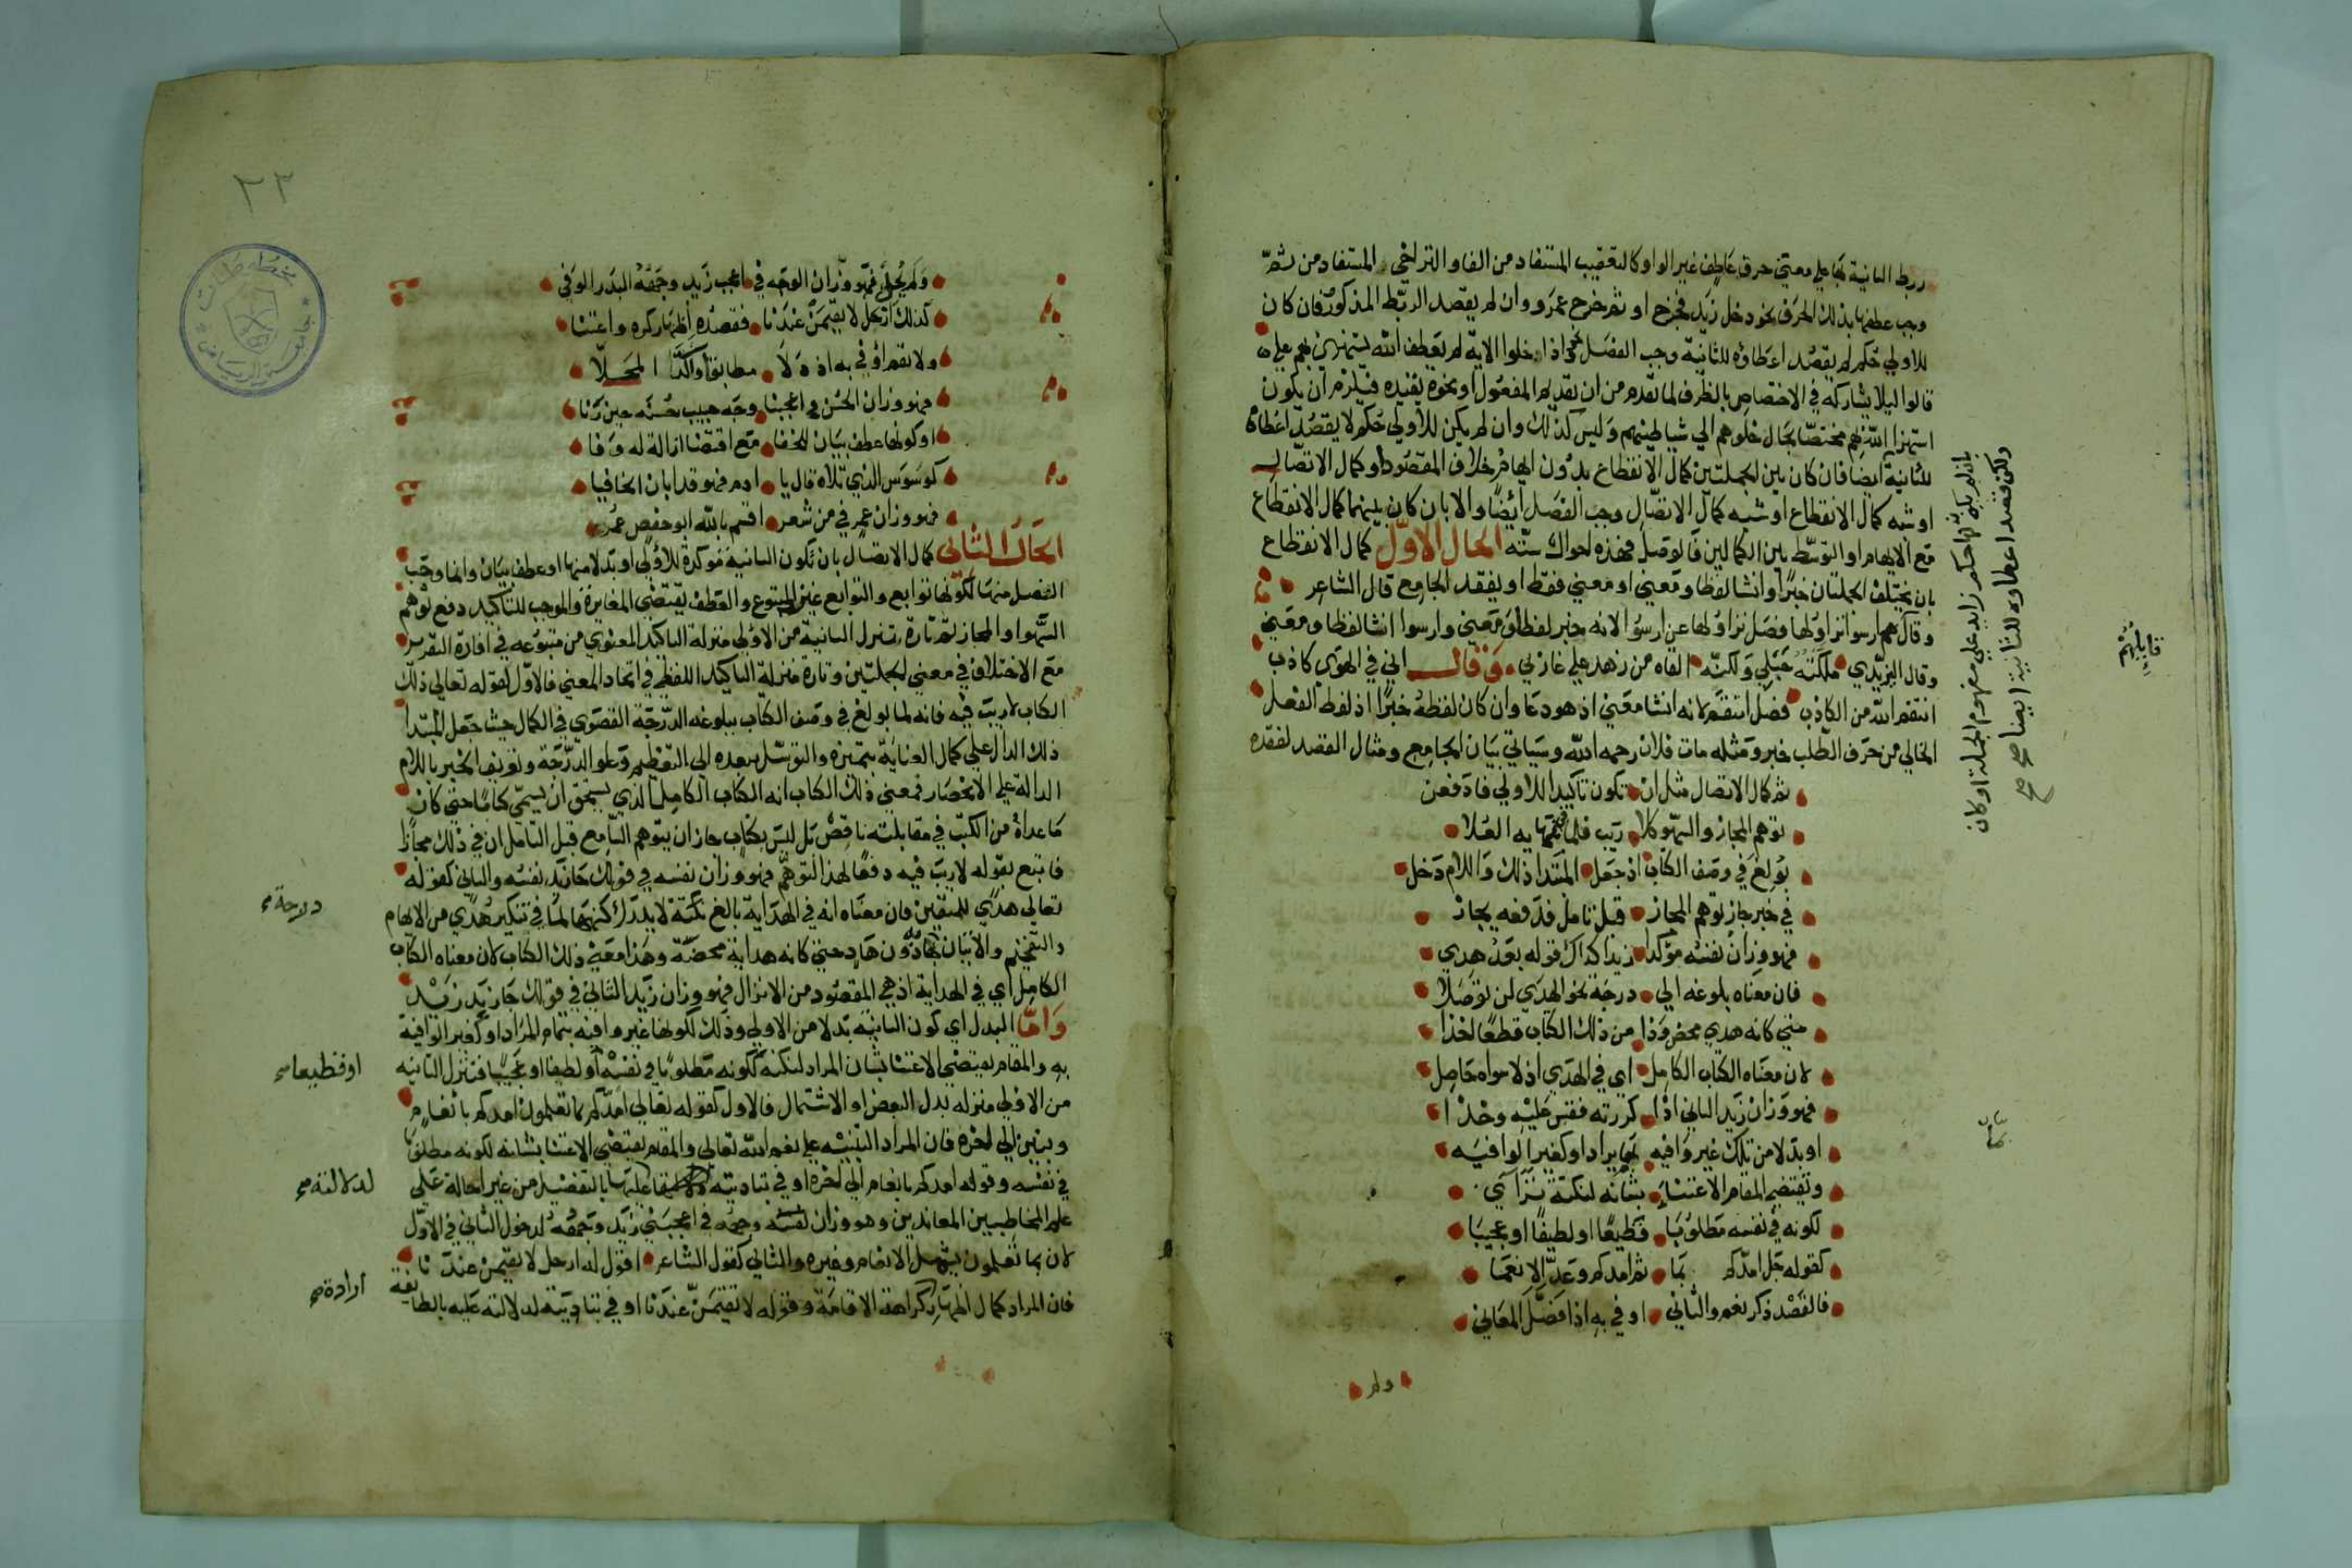 ربط الثانية بها علي معني حرف عاطف غير الواو كالتعقيب المستفاد من الفا والتراخي المستفاد من ثم
وجب عطفها بذلك الحرف نحو دخل زيد فخرج او ثم خرج عمرو وان لم يقصد الربط المذكور فان كان
للاولي حكم لم يقصد اعطاؤه للثانية وجب الفصل نحو اذا خلوا الاية لم يعطف الله يستهزئ بهم علي
قالوا ليلا يشاركه في الاختصاص بالظرف لما تقدم من ان تقديم المفعول او نحوه يفيده فيلزم ان يكون
استهزا الله بهم مختصا بحال خلوهم الي شياطينهم وليس كذلك وان لم يكن للاولي حكم لا يقصد اعطاه
للثانية ايضا فان كان بين الجملتين كمال الانقطاع بدون ايهام خلاف المقصود او كمال الاتصال
او شبه كمال الانقطاع او شبه كمال الاتصال وجب الفصل ايضا والا بان كان بينهما كمال الانقطاع
مع الايهام او التوسط بين الكمالين فالوصل فهذه احوال ستة الحال الاول كمال الانقطاع
بان يختلف الجملتان خبرا وانشا لفظا ومعني او معني فقط او يفقد الجامع قال الشاعر
وقال هم ارسوا نزاولها فصل نزاولها عن ارسوا لانه خبر لفظا ومعني وارسوا انشا لفظا ومعني
وقال اليزيدي ملكته حبلي ولكنه القاه من زهد علي غاربي وقال اني في الهوي كاذب
انتقم الله من الكاذب فصل انتقم لانه انشا معني اذ هو دعا وان كان لفظه خبرا اذ لفظ الفعل
الخالي من حرف الطلب خبر ومثله مات فلان رحمه الله وسياتي بيان الجامع ومثال الفصد لفقده
ثم كمال الاتصال مثل ان تكون تاكيدا للاولي فادفعن
توهم المجاز والسهو كلا ريب فلما
بولغ في وصف الكتاب اذ جعل المبتدا ذلك واللام دخل
في خبر جاز توهم المجاز قبل تامل فدفعه يجاز
فهو وزان نفسه موكدا زيدا كذاك قوله بعد هدي
فان معناه بلوغه الي درجة نحو الهدي لن توصلا
متي كانه هدي محض وذا من ذلك الكتاب قطعا اخذا
لان معناه الكتاب الكامل اي في الهدي اذ لا سواه حاصل
فهو وزان زيد الثاني اذا كررته فقس عليه وخذا
او بدلا من تلك غير وافيه بما يراد او كغير الوافيه
وتقتضي المقام الاعتناء بشانه لنكتة
لكونه في نفسه مطلوبا فظيعا او لطيفا او عجيبا
كقوله جل امدكم بما ثم امدكم وعد الانعما
فالقصد ذكر نعم والثاني اوفي به اذ فصل المعاني
ولم
بان لم يكن لها حكم زايد علي مفهوم الجملة او كان
ولكن قصد اعطاوه للثانية ايضا صح صح
قايلهم
بيان
٣٢
مخطوطات
جامعة الرياض
ولم يحل فهو وزان الوجه في اعجب زيد وجهه البدر الوفي
كذلك ارحل لا تقيمن عندنا فقصده اظهار كره واعتنا
ولا تقم اوفي به اذ دلا مطابقا واكد المحلا
فهو وزان الحسن في اعجبنا وجه حبيب حسنه حين رنا
او كونها عطف بيان للخفا مع اقتضا ازالة له وفا
كوسوس الذي تلاه قال يا ادم فهو قد ابان الخافيا
فهو وزان عمر في من شعر اقسم بالله ابو حفص عمر
الحال الثاني كمال الاتصال بان تكون الثانية موكدة للاولي او بدلا منها او عطف بيان وانما وجب
الفصل منها لكونها توابع والتوابع عين المتبوع والعطف يقتضي المغايرة والموجب للتاكيد دفع توهم
السهو او المجاز ثم تارة تنزل الثانية من الاولي منزلة التاكيد المعنوي من متبوعه في افادة التقرير
مع الاختلاف في معني الجملتين وتارة منزلة التاكيد اللفظي في اتحاد المعني فالاول كقوله تعالي ذلك
الكتاب لا ريب فيه فانه لما بولغ في وصف الكتاب ببلوغه الدرجة القصوي في الكمال حيث جعل المبتدا
ذلك الدال علي كمال العناية بتميزه والتوسل ببعده الي التعظيم وعلو الدرجة وتعريف الخبر باللام
الدالة علي الانحصار فمعني ذلك الكتاب انه الكتاب الكامل الذي يستحق ان يسمي كتابا حتي كان
ما عداه من الكتب في مقابلته ناقص بل ليس بكتاب جاز ان يتوهم السامع قبل التامل ان في ذلك مجازا
فاتبع بقوله لا ريب فيه دفعا لهذا التوهم فهو وزان نفسه في قولك جا زيد نفسه والثاني كقوله
تعالي هدي للمتقين فان معناه انه في الهداية بالغ نكتة لا يدرك كنهها لما في تنكير هدي من الابهام
والتفخيم والاتيان بها دون هاد حتي كانه هداية محضة وهذا معني ذلك الكتاب لان معناه الكتاب
الكامل اي في الهداية اذ هي المقصود من الانزال فهو وزان زيد الثاني في قولك جا زيد زيد
واما البدل اي كون الثانية بدلا من الاولي وذلك لكونها غير وافية بتمام المراد او كغير الوافية
به والمقام يقتضي الاعتنا بشان المراد لنكتة ككونه مطلوبا في نفسه او لطيفا او عجيبا فتنزل الثانية
من الاولي منزلة بدل البعض او الاشتمال فالاول كقوله تعالي امدكم بما تعلمون امدكم بانعام
وبنين الي اخره فان المراد التنبيه علي نعم الله تعالي والمقام يقتضي الاعتنا بشانه لكونه مطلوبا
في نفسه وقوله امدكم بانعام الي اخره اوفي بتاديته عليها بالتفصيل من غير احالة علي
علم المخاطبين المعاندين وهو وزان نفسه وجهه في اعجبني زيد وجهه لدخول الثاني في الاول
لان بما تعلمون يشمل الانعام وغيره والثاني كقول الشاعر اقول له ارحل لا تقيمن عندنا
فان المراد كمال اظهار كراهة الاقامة وقوله لا تقيمن عندنا اوفي بتاديته لدلالته عليه بالمطابقة
درجة صح
او فظيعا صح
لدلالته صح
ارادة صح